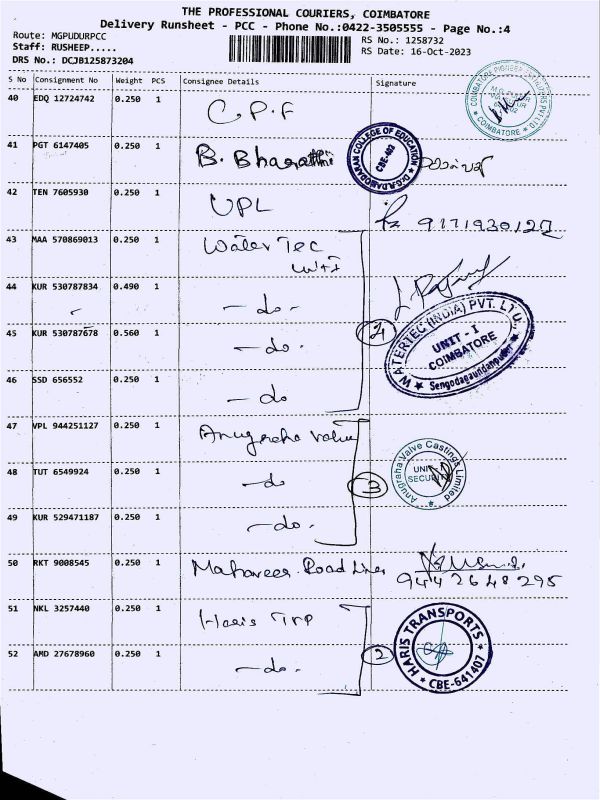 THE PROFESSIONAL COURIERS, COIMBATORE
Delivery Runsheet - PCC - Phone No.:0422-3505555 - Page No.:4
Route: MGPUDURPCC
Staff: RUSHEEP.....
DRS No.: DCJB125873204
RS No.: 1258732
RS Date: 16-Oct-2023
S No Consignment No Weight PCS Consignee Details Signature
40 EDQ 12724742 0.250 1 C.P.F
COIMBATORE
41 PGT 6147405 0.250 1 B. Bharathi
Dr.G.R.DAMODARAN COLLEGE OF EDUCATION
CBE-402
42 TEN 7605930 0.250 1 UPL
43 MAA 570869013 0.250 1 Water Tec
unit I
44 KUR 530787834 0.490 1 - do -
45 KUR 530787678 0.560 1 - do -
46 SSD 656552 0.250 1 - do
4
WATERTEC (INDIA) PVT. LTD.,
UNIT - I
COIMBATORE
Sengodagaundanpudur
47 VPL 944251127 0.250 1 Anugraha Valve
48 TUT 6549924 0.250 1 - do
49 KUR 529471187 0.250 1 - do -
3
Anugraha Valve Castings Limited
UNIT
SECURITY
50 RKT 9008545 0.250 1 Mahaveer Road Lines
9442648295
51 NKL 3257440 0.250 1 Haris Trp
52 AMD 27678960 0.250 1 - do -
2
HARIS TRANSPORTS
CBE-641407